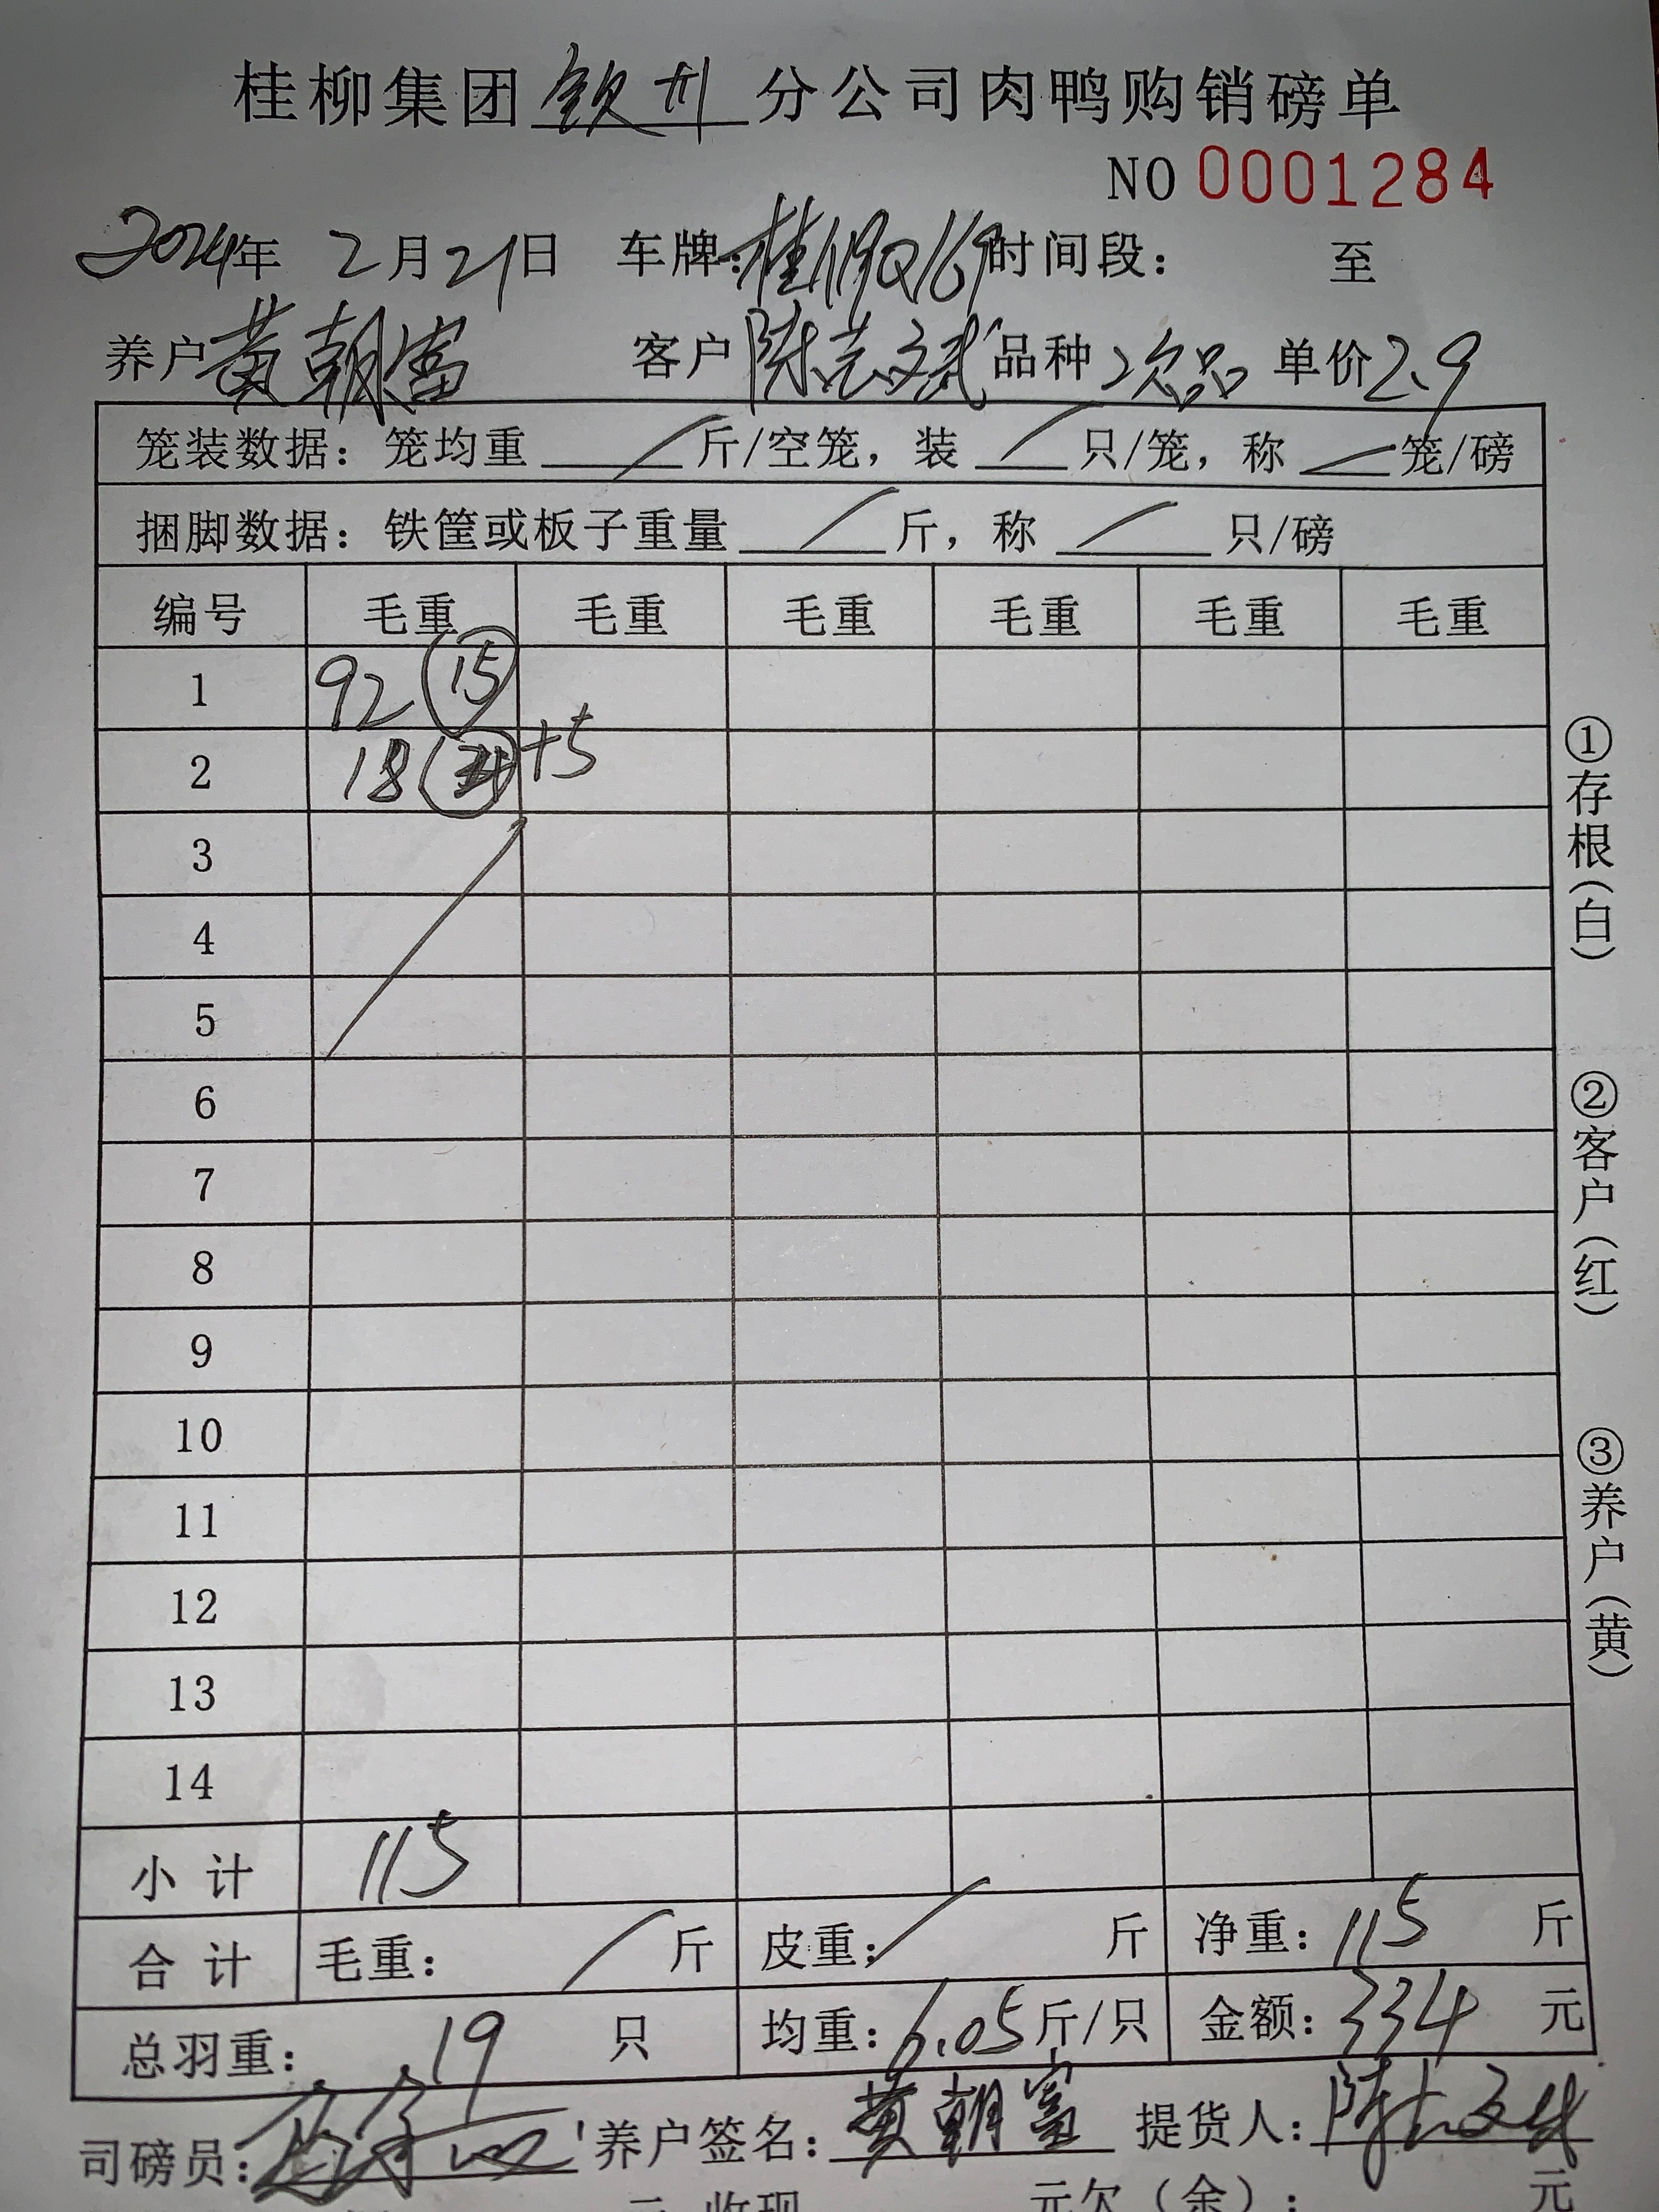 桂柳集团钦州分公司肉鸭购销磅单
NO 0001284
2024年 2月21日 车牌: 时间段： 至
养户黄朝富 客户陈志斌 品种 次品 单价2.9
笼装数据：笼均重 / 斤/空笼，装 / 只/笼，称 / 笼/磅
捆脚数据：铁筐或板子重量 / 斤，称 / 只/磅
编号 毛重 毛重 毛重 毛重 毛重 毛重
1 92 (15)
2 18 +5
3
4
5
6
7
8
9
10
11
12
13
14
小计 115
合计 毛重： / 斤 皮重： / 斤 净重：115 斤
总羽重： 19 只 均重：6.05斤/只 金额：334 元
司磅员： 养户签名：黄朝富 提货人：陈志斌
元欠（余）： 元
①存根（白）
②客户（红）
③养户（黄）